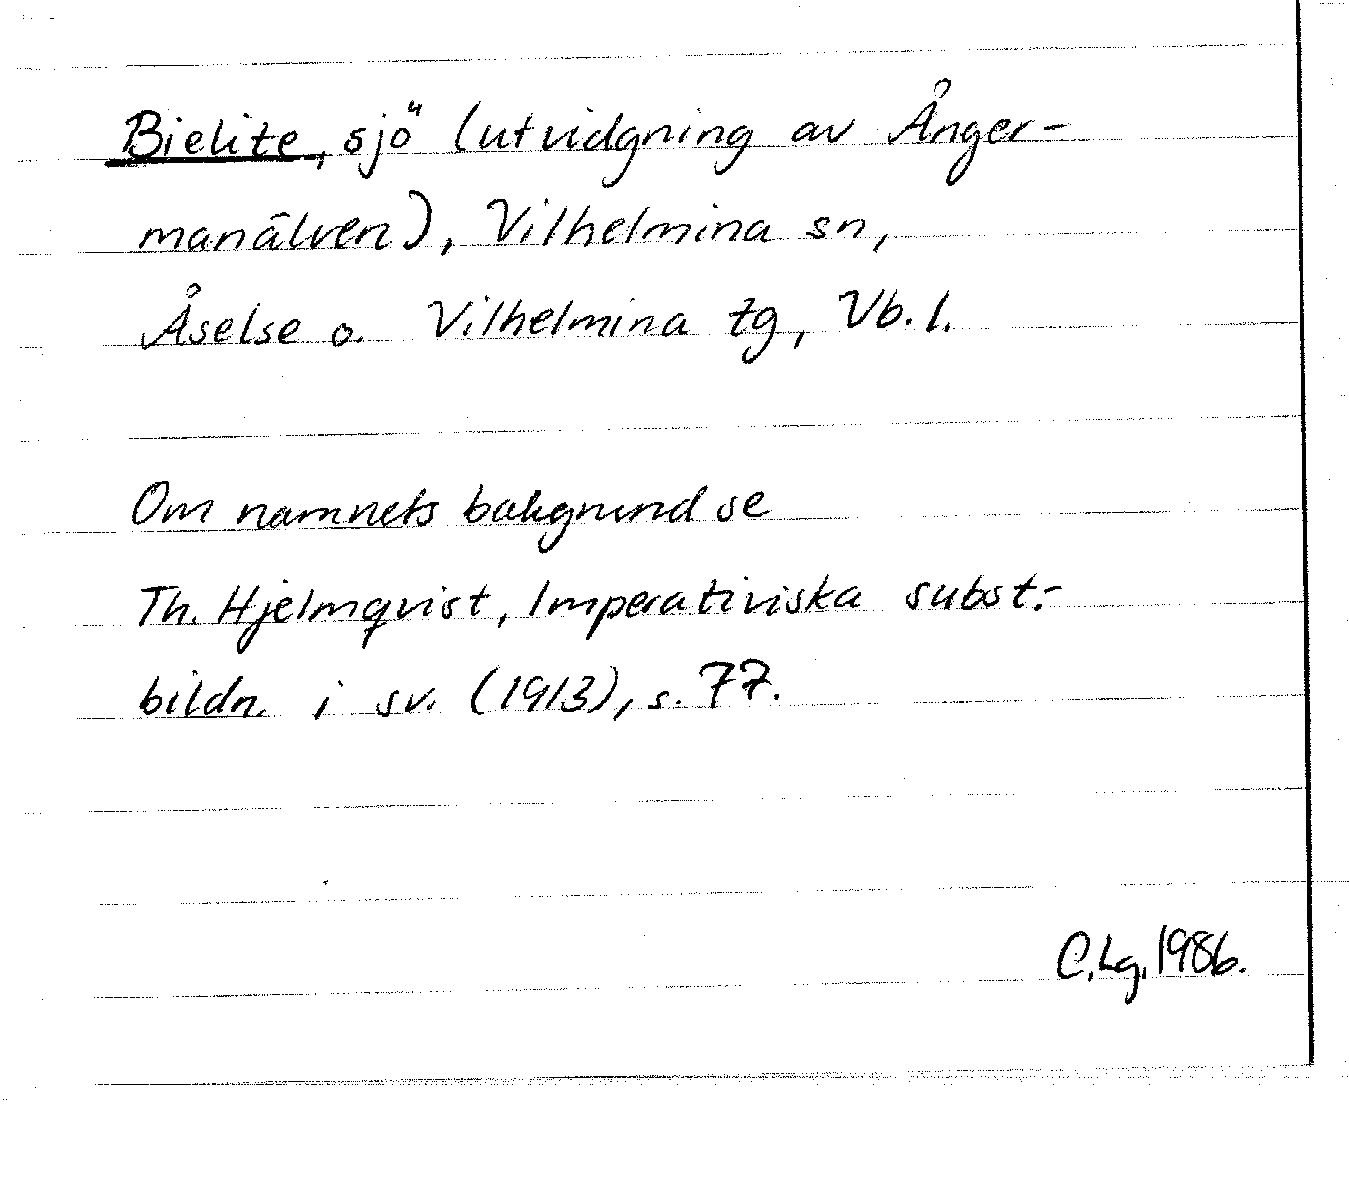 Bielite, sjö (utvidgning av Ånger-
manälven), Vilhelmina sn,
Åselse o. Vilhelmina tg, Vb. l.
Om namnets bakgrund se
Th. Hjelmqvist, Imperativiska subst.-
bildn. i sv. (1913), s. 77.
C.Lg. 1986.